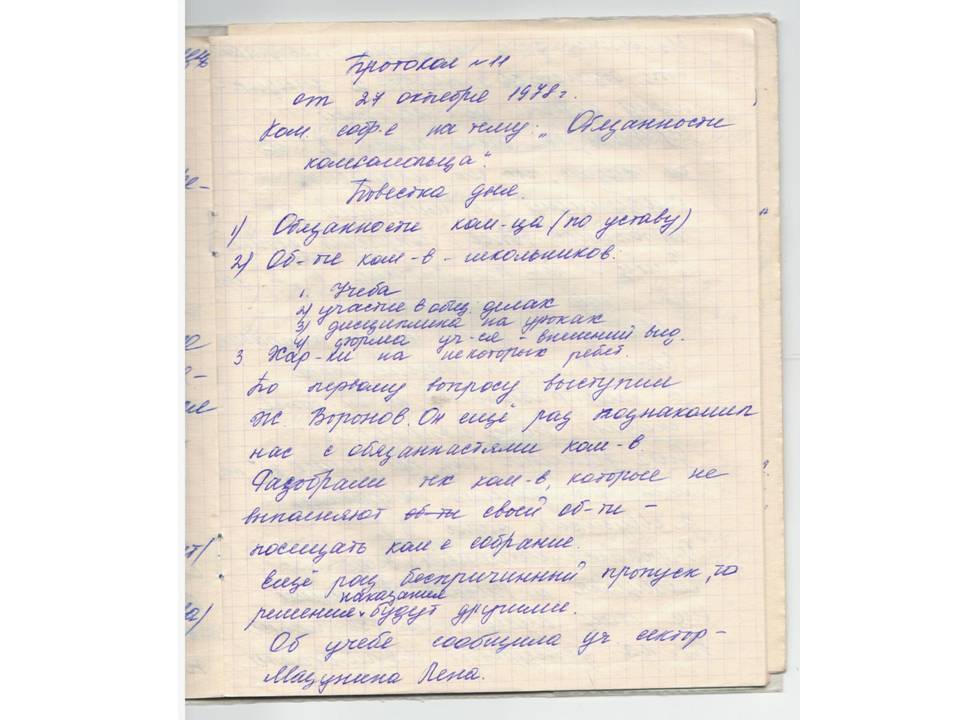 Протокол № 11
от 27 октября 1978 г.
Ком. собр-е на тему: „Обязанности
комсомольца".
Повестка дня.
1) Обязанности ком-ца (по уставу)
2) Об-ти ком-в - школьников.
1. Учеба
2) участие в общ. делах
3) дисциплина на уроках
4) форма уч-ся - внешний вид.
3. Хар-ки на некоторых ребят.
По первому вопросу выступил
Воронов. Он ещё раз познакомил
нас с обязанностями ком-в
Разобрали тех ком-в, которые не
выполняют об-ти своей об-ти -
посещать ком е собрание.
Ещё раз беспричинный пропуск, то
наказания
решения будут другими.
Об учебе сообщила уч сектор -
Мазунина Лена.